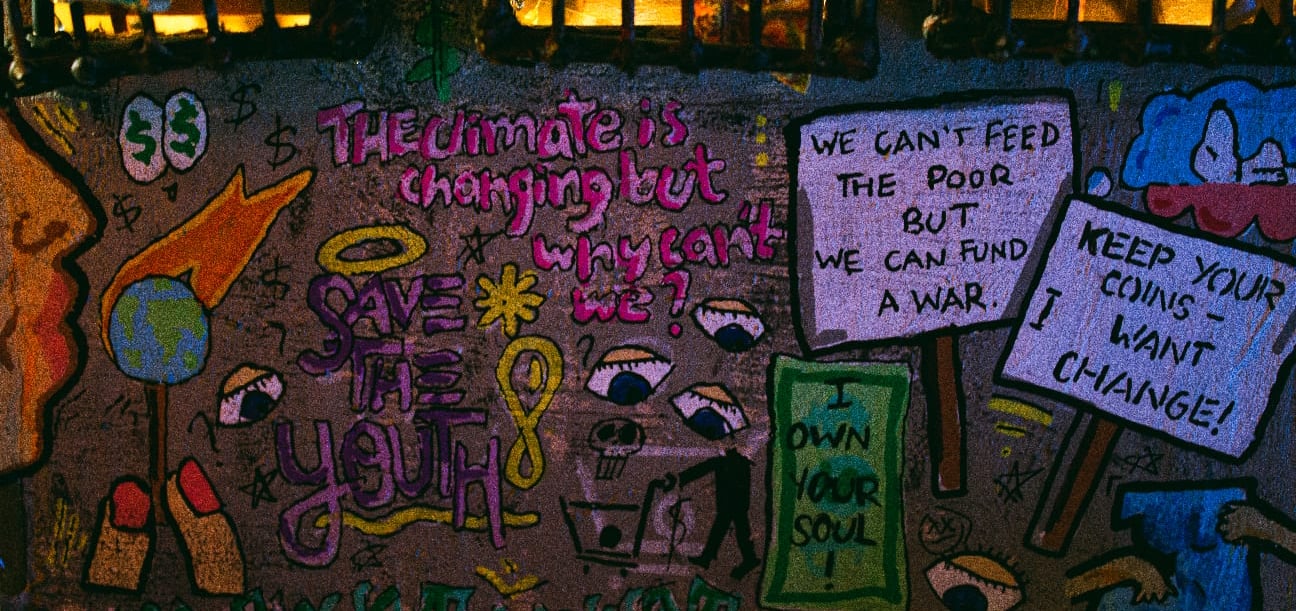 THE climate is
changing but
why can't
we?
SAVE
THE
YOUTH
WE CAN'T FEED
THE POOR
BUT
WE CAN FUND
A WAR.
KEEP YOUR
COINS -
I WANT
CHANGE!
I
OWN
YOUR
SOUL
!